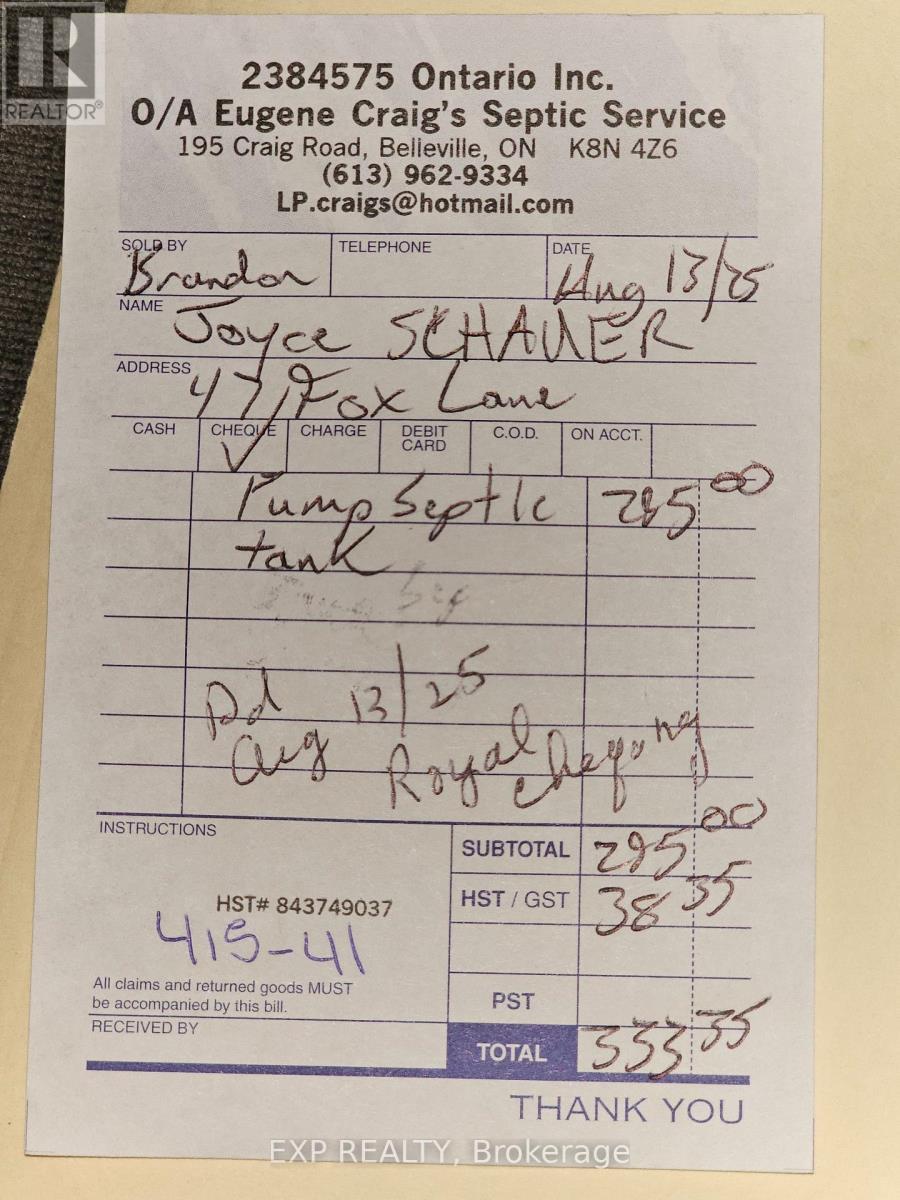 REALTOR®
2384575 Ontario Inc.
O/A Eugene Craig's Septic Service
195 Craig Road, Belleville, ON K8N 4Z6
(613) 962-9334
LP.craigs@hotmail.com
SOLD BY TELEPHONE DATE
Brandon Aug 13/25
NAME
Joyce SCHAUER
ADDRESS
47 Fox Lane
CASH CHEQUE CHARGE DEBIT CARD C.O.D. ON ACCT.
✓
Pump Septic 295 00
tank
Pd Aug 13/25
Royal Chequing
INSTRUCTIONS
SUBTOTAL 295 00
HST# 843749037
HST / GST 38 35
415-41
All claims and returned goods MUST
be accompanied by this bill.
PST
RECEIVED BY
TOTAL 333 35
THANK YOU
EXP REALTY, Brokerage